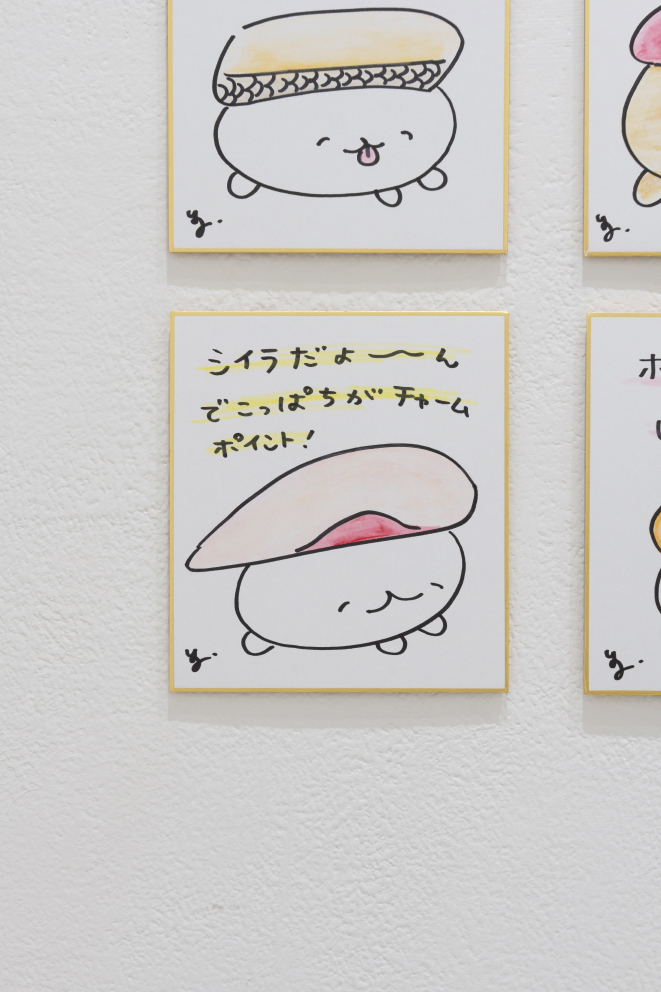 y.
y.
シイラだよ〜〜ん
でこっぱちがチャーム
ポイント!
y.
ホ
y.